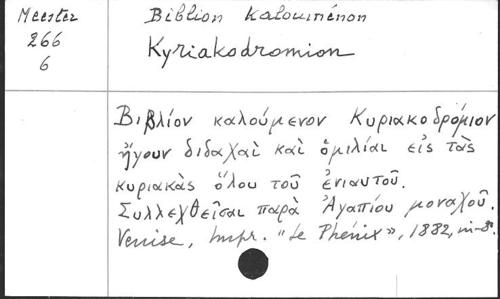 Meester
266
6
Biblion kaloumenon
Kyriakodromion
Βιβλίον καλούμενον Κυριακοδρόμιον
ἤγουν διδαχαὶ καὶ ὁμιλίαι εἰς τὰς
κυριακὰς ὅλου τοῦ ἐνιαυτοῦ.
Συλλεχθεῖσαι παρὰ Ἀγαπίου μοναχοῦ.
Venise, Impr. "Le Phénix", 1882, in-8°.